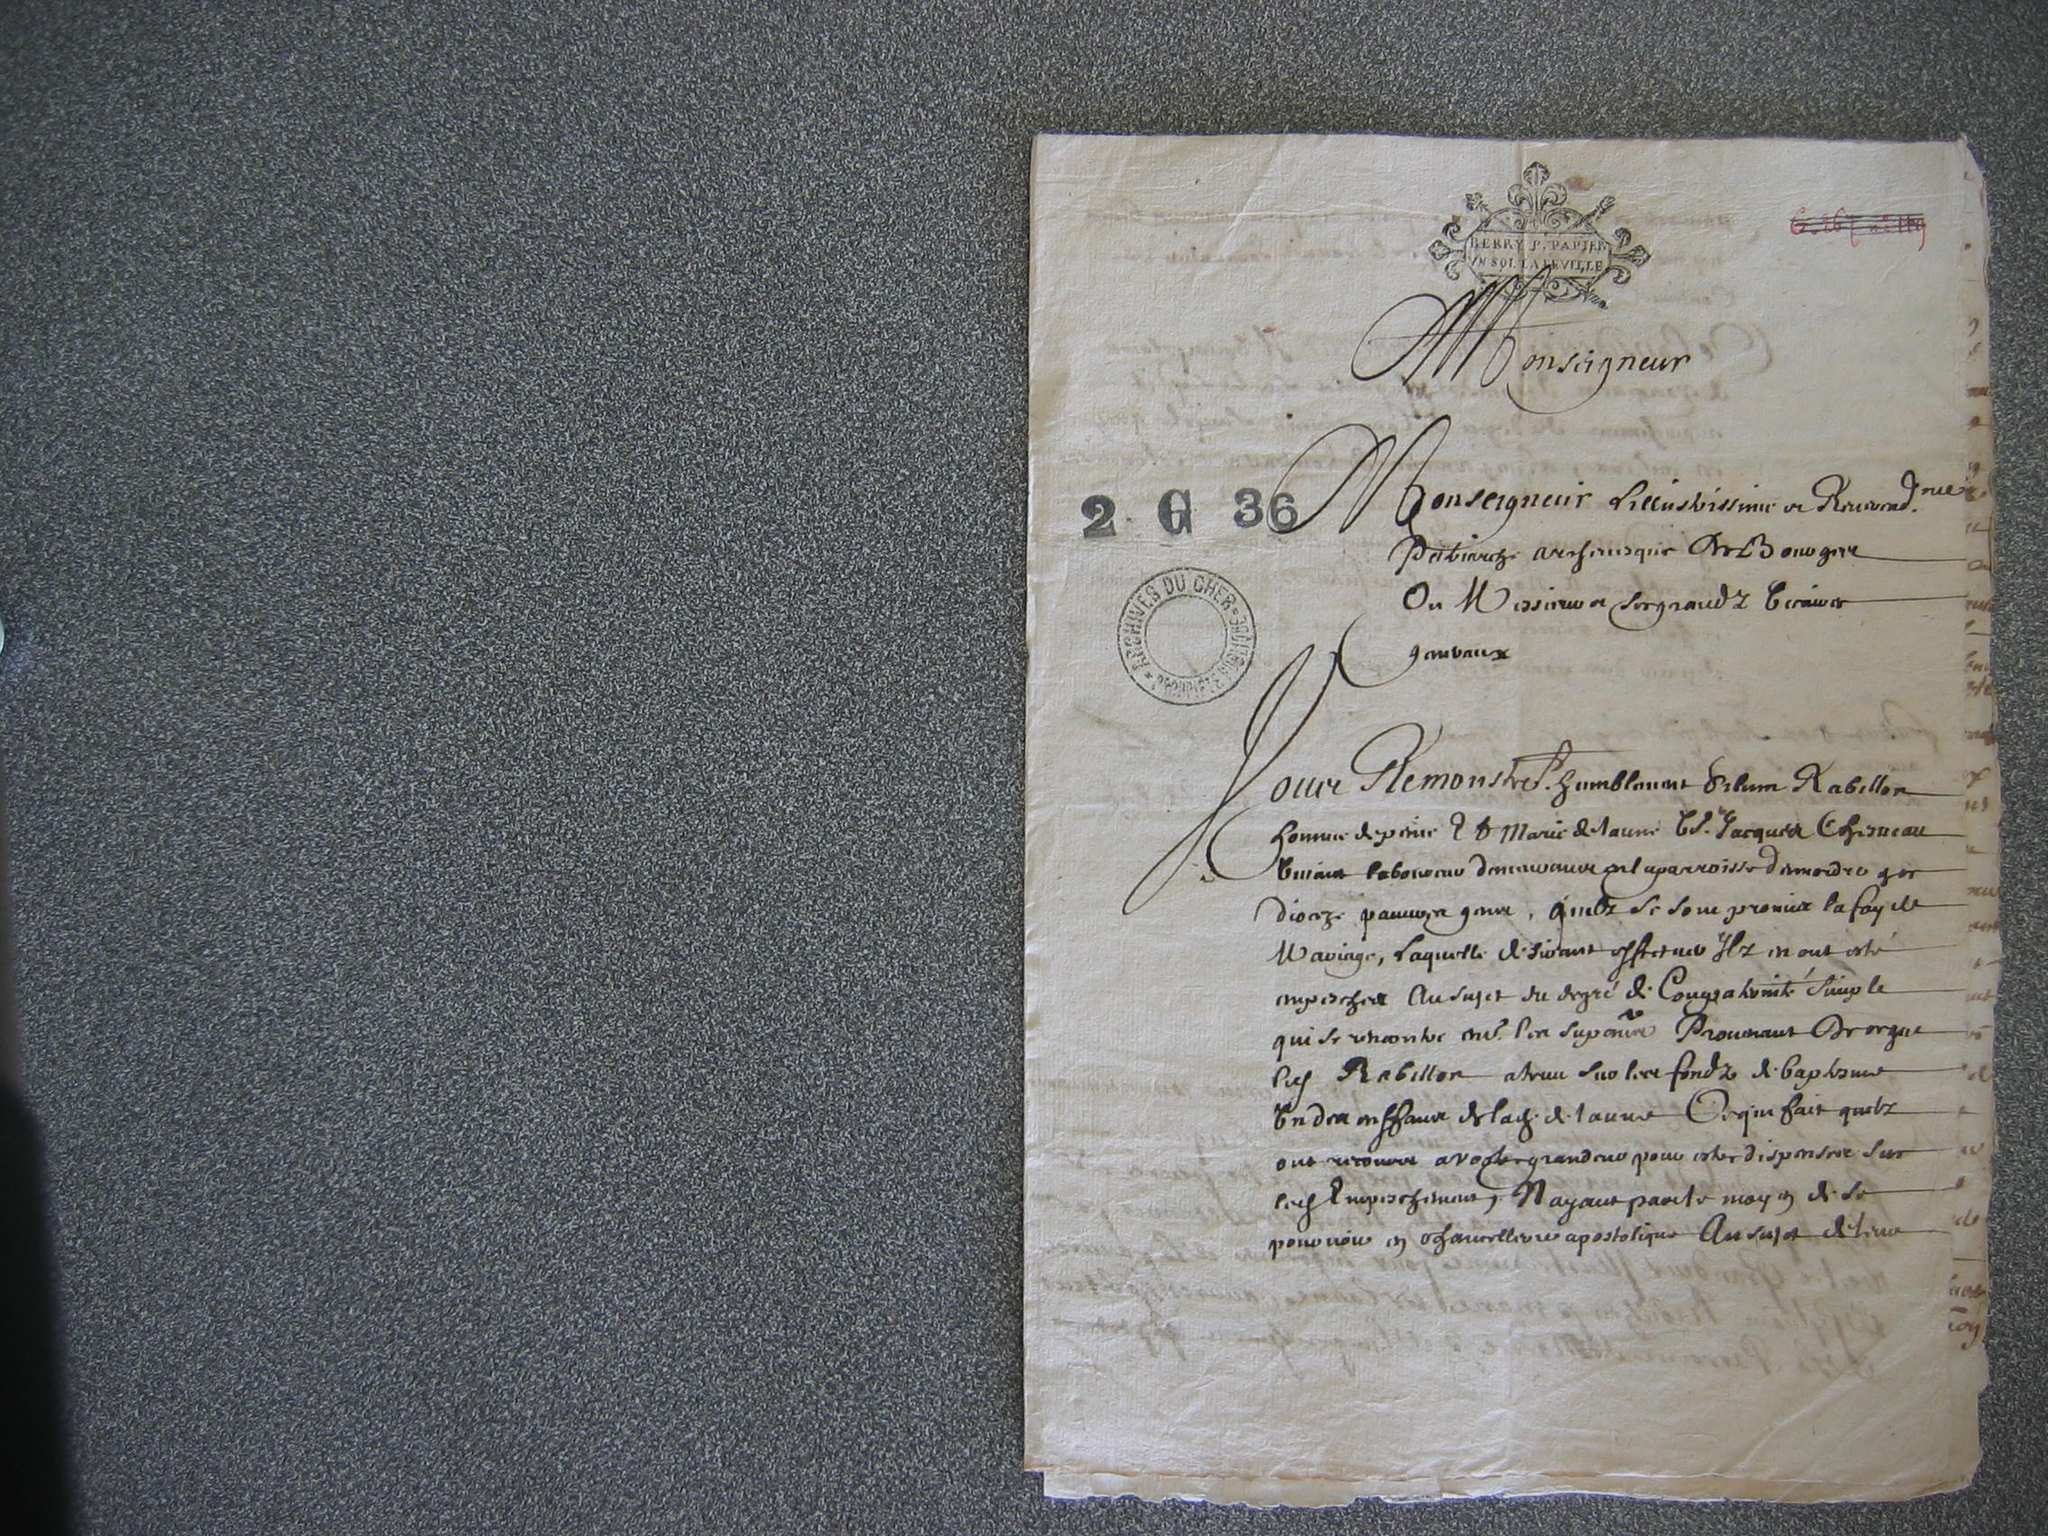 BERRY P. PAPIER
UN SOL LA FEUILLE
Monseigneur
2 G 36
Monseigneur Lillustrissime et Reverend.me
Patriarche archevesque De Bourges
Ou Messieurs ses grandz Vicaires
generaux
ARCHIVES DU CHER
Vous Remonstre humblement Rabillon
homme de peine & Marie delaune Ve. Jacques Chesneau
vivant laboureur demeurant en la parroisse de ce
dioceze pauvres gens, quilz se sont promis la foy de
Mariage, Laquelle desirant effectuer Ilz en ont esté
empeschez Au sujet du degré de Compaternité simple
qui se rencontre ent. les Provenant De ce que
led Rabillon a tenu sur les fondz de baptesme
Un des enffans de lad. delaune Ce qui fait quilz
ont recours a vostre grandeur pour estre dispensez sur
led Empeschement, Nayant pas le moyen de se
pourvoir en chancellerie apostolique Au sujet de leur